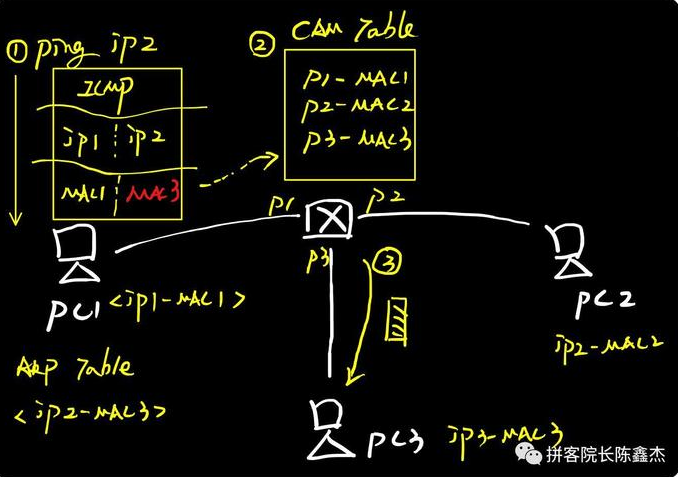 ① Ping ip2
ICMP
ip1 ip2
MAC1 MAC3
② CAM Table
P1-MAC1
P2-MAC2
P3-MAC3
P1
P2
P3
③
PC1 <ip1-MAC1>
ARP Table
<ip2-MAC3>
PC2
ip2-MAC2
PC3 ip3-MAC3
拼客院长陈鑫杰